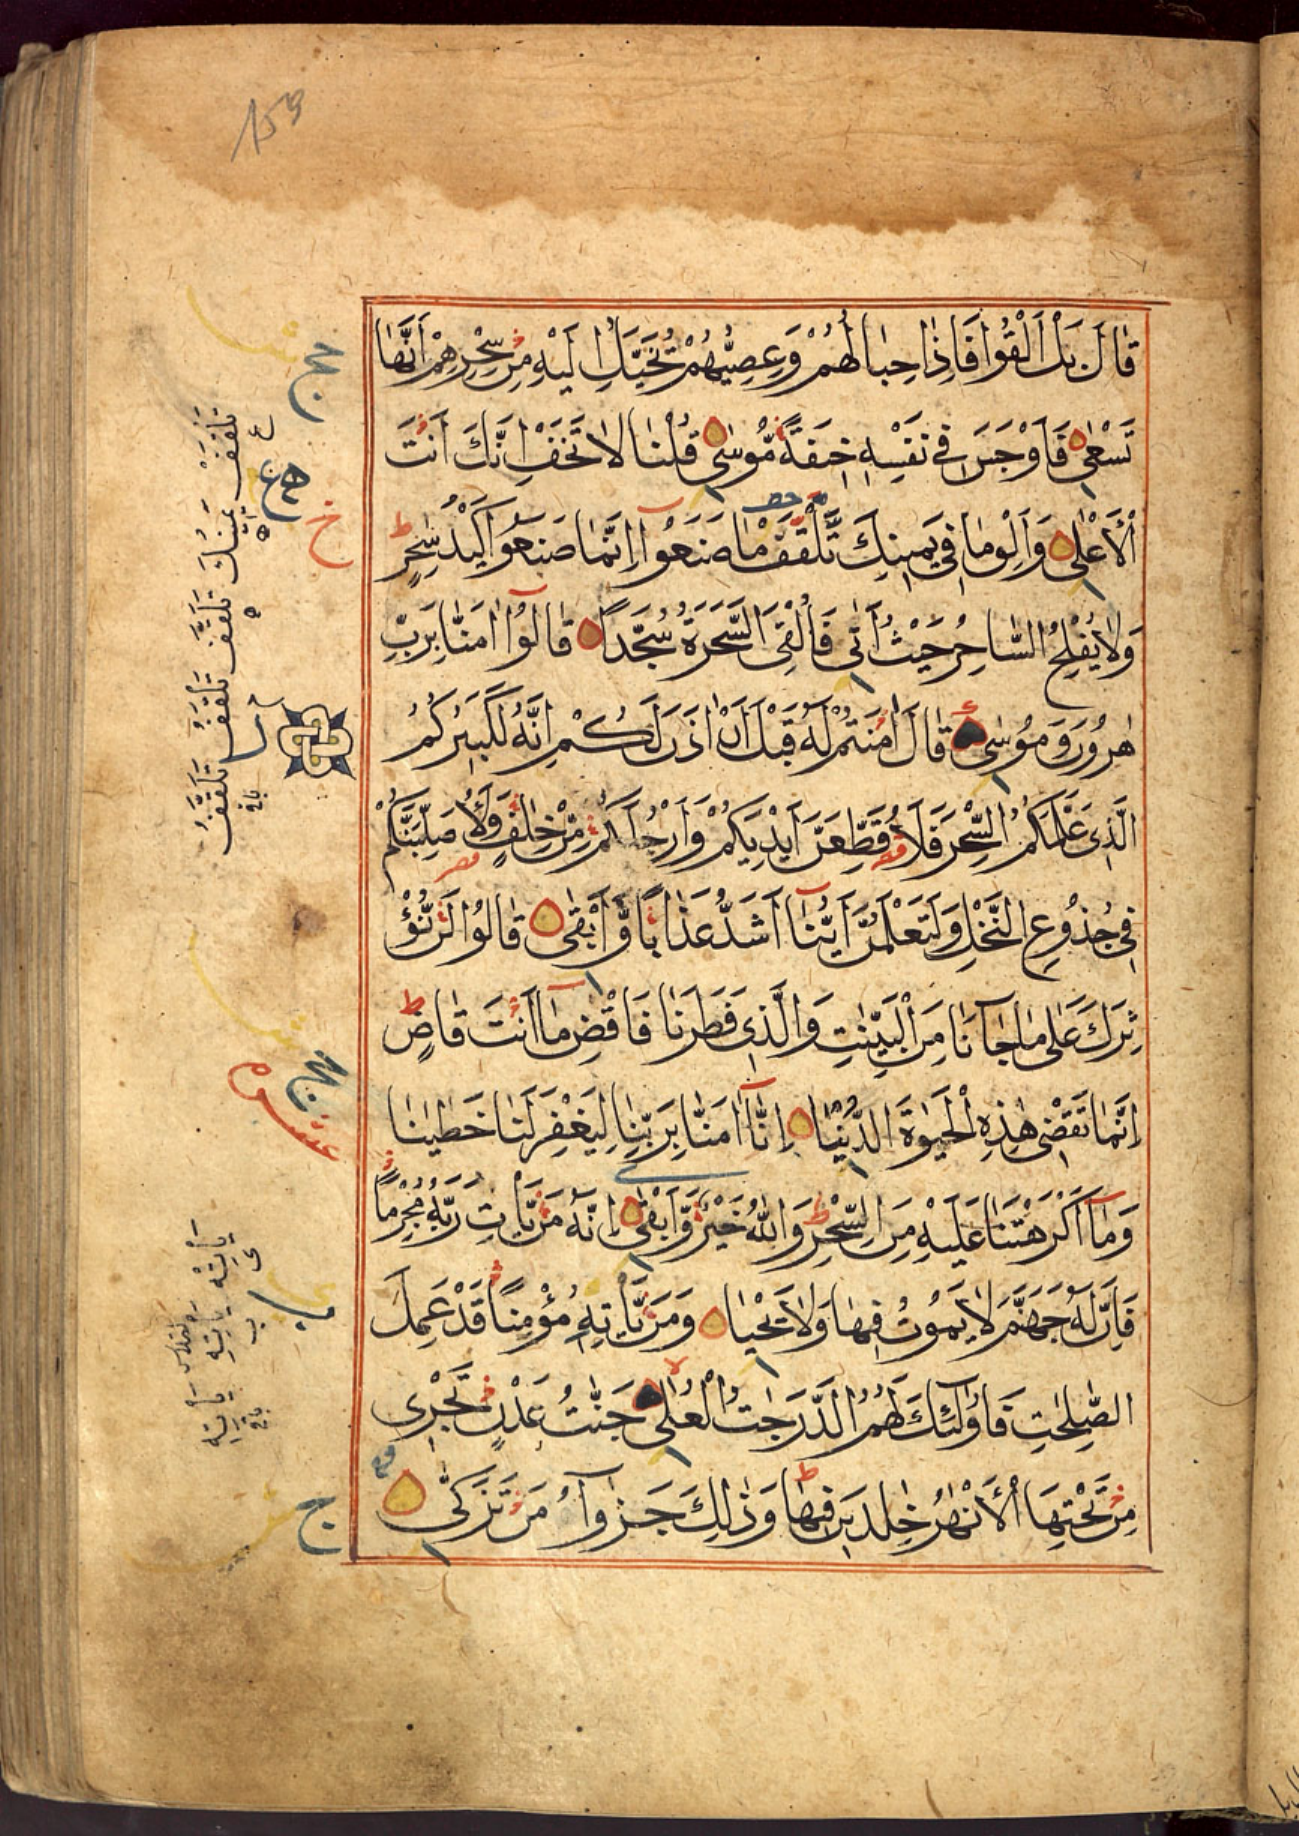 قَالَ بَلْ أَلْقُوا فَإِذَا حِبَالُهُمْ وَعِصِيُّهُمْ تُخَيَّلُ إِلَيْهِ مِنْ سِحْرِهِمْ أَنَّهَا
تَسْعٰى فَأَوْجَسَ فِي نَفْسِهِ خِيفَةً مُّوسٰى قُلْنَا لَا تَخَفْ إِنَّكَ أَنْتَ
الْأَعْلٰى وَأَلْقِ مَا فِي يَمِينِكَ تَلَقَّفْ مَا صَنَعُوا إِنَّمَا صَنَعُوا كَيْدُ سٰحِرٍ
وَلَا يُفْلِحُ السَّاحِرُ حَيْثُ أَتٰى فَأُلْقِيَ السَّحَرَةُ سُجَّدًا قَالُوا اٰمَنَّا بِرَبِّ
هٰرُونَ وَمُوسٰى قَالَ اٰمَنْتُمْ لَهُ قَبْلَ أَنْ اٰذَنَ لَكُمْ إِنَّهُ لَكَبِيرُكُمُ
الَّذِي عَلَّمَكُمُ السِّحْرَ فَلَأُقَطِّعَنَّ أَيْدِيَكُمْ وَأَرْجُلَكُمْ مِّنْ خِلٰفٍ وَّلَأُصَلِّبَنَّكُمْ
فِي جُذُوعِ النَّخْلِ وَلَتَعْلَمُنَّ أَيُّنَا أَشَدُّ عَذَابًا وَّأَبْقٰى قَالُوا لَنْ نُّؤْ
ثِرَكَ عَلٰى مَا جَآءَنَا مِنَ الْبَيِّنٰتِ وَالَّذِي فَطَرَنَا فَاقْضِ مَا أَنْتَ قَاضٍ
إِنَّمَا تَقْضِي هٰذِهِ الْحَيٰوةَ الدُّنْيَا إِنَّا اٰمَنَّا بِرَبِّنَا لِيَغْفِرَ لَنَا خَطٰيٰنَا
وَمَا أَكْرَهْتَنَا عَلَيْهِ مِنَ السِّحْرِ وَاللّٰهُ خَيْرٌ وَّأَبْقٰى إِنَّهُ مَنْ يَّأْتِ رَبَّهُ مُجْرِمًا
فَإِنَّ لَهُ جَهَنَّمَ لَا يَمُوتُ فِيهَا وَلَا يَحْيَا وَمَنْ يَّأْتِهِ مُؤْمِنًا قَدْ عَمِلَ
الصّٰلِحٰتِ فَأُولٰٓئِكَ لَهُمُ الدَّرَجٰتُ الْعُلٰى جَنّٰتُ عَدْنٍ تَجْرِي
مِنْ تَحْتِهَا الْأَنْهٰرُ خٰلِدِينَ فِيهَا وَذٰلِكَ جَزٰٓؤُا مَنْ تَزَكّٰى